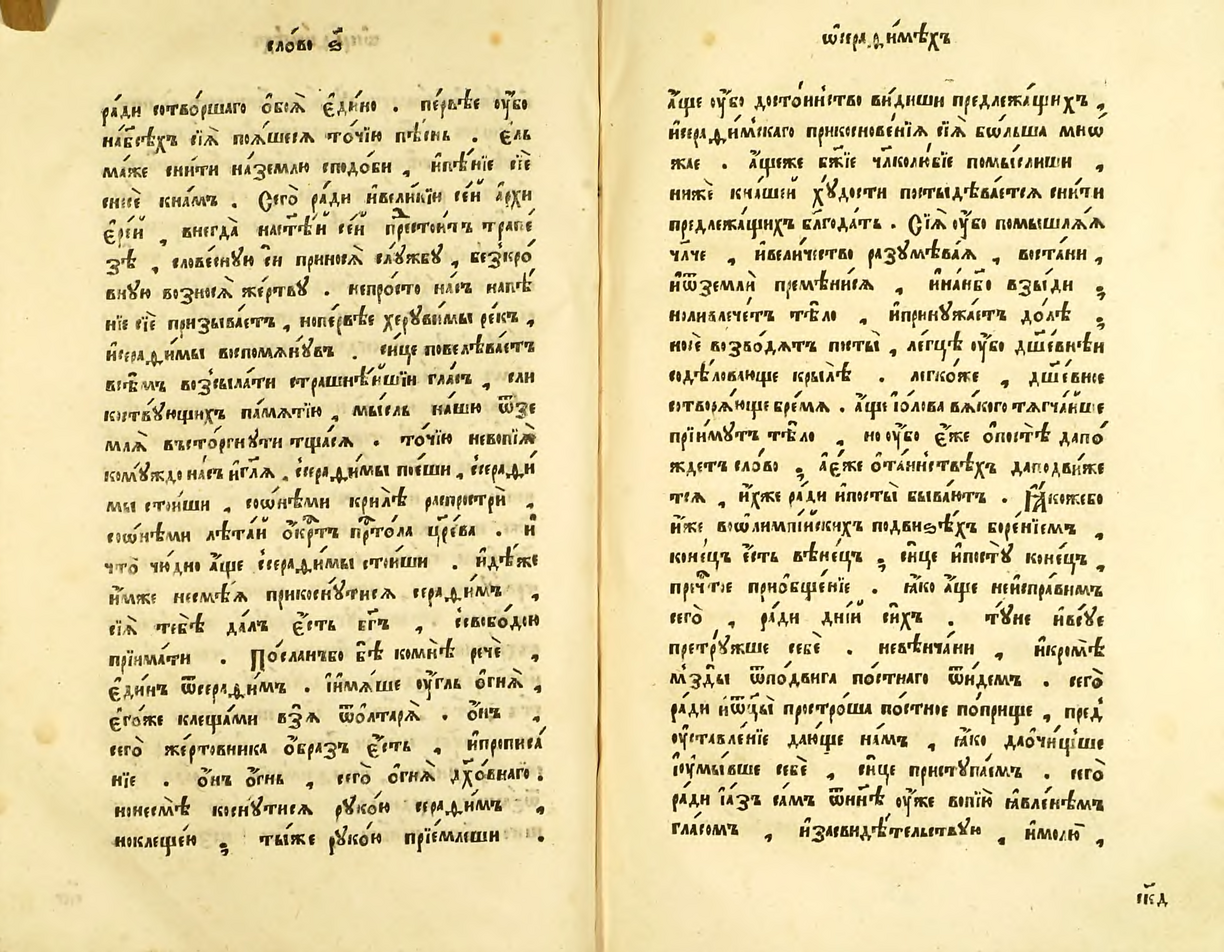 сло́во ѕ҃
ра́ди сотво́ршаго ѻ҆боѧ̀ є҆ди́но . пе́рвѣе ᲂу҆́бо
на́бсѣхъ сїѧ̀ поѧ́шесѧ то́чїю пѣ́снь . є҆ль
ма́же сни́ти на́землю сподо́би , и҆пѣ́нїе сїѐ
снесѐ кна́мъ . Сегѡ̀ ра́ди и҆вели́кїи се́й а҆рхи
є҆ре́й , внегда̀ наст҃ѣ́й се́й престои́тъ трапе́
зѣ , слове́сную си̏ приносѧ̀ слу́жбу , безкро́
вную возносѧ̀ же́ртву . непро́сто на́съ напѣ́
нїе сїѐ призыва́етъ , нопе́рвѣе херуви́мы ре́къ ,
и҆сераѳи́мы воспомѧну́въ . си́це повелѣва́етъ
всѣ̑мъ возсыла́ти страшнѣ́йшїи гла́съ , сли
кѡству́ющихъ па́мѧтїю , мы́сль на́шу ѿзе
млѧ̀ въсто́ргнути тща́сѧ . то́чїю невопїѧ̀
кому́ждо на́съ и҆гл҃ѧ , ссераѳи́мы пое́ши , ссераѳи́
мы стои́ши , сѡни́ми криле́ распростри̏ ,
сѡни́ми лѣта́й ѻ҆́крⷭ҇тъ прⷭ҇то́ла цр҃е́ва . и҆
что̀ чю́дно а҆́ще ссераѳи́мы стои́ши . и҆дѣ́же
и҆́мже несмѣ́ѧ прикосну́тисѧ сераѳи́мъ ,
сїѧ̀ тебѣ̀ да́лъ є҆́сть бг҃ъ , ссвобо́дою
прїима́ти . По́сланъбо бѣ̀ комнѣ̀ рече̏ ,
є҆ди́нъ ѿсераѳи́мъ . і҆имѧ́ше ᲂу҆́гль ѻ҆́гнѧ ,
є҆го́же клеща́ми взѧ̀ ѿѻлтарѧ̀ . ѻ҆́нъ ,
сегѡ̀ же́ртовника ѻ҆́бразъ є҆́сть , и҆прописа́
нїе . ѻ҆́нъ ѻ҆́гнь , сегѡ̀ ѻ҆гнѧ̀ дх҃о́внаго .
нонесмѣ̀ косну́тисѧ руко́ю сераѳи́мъ ,
ноклеще́ю ; ты́же руко́ю прїе́млеши .
ѡ҆сераѳи́мѣхъ
а҆́ще ᲂу҆́бо досто́инство ви́диши предлежа́щихъ ,
и҆сераѳи́мскаго прикоснове́нїѧ сїѧ̀ бо́льша мно̀
жае . а҆́щеже бж҃їе чл҃колю́бїе помы́слиши ,
ниже̏ кна́шей ху́дости постыдѣва́етсѧ сни́ти
предлежа́щихъ благода́ть . Сїѧ̀ ᲂу҆́бо помышлѧ́ѧ
чл҃че , и҆вели́чество разумѣва́ѧ , воста́ни ,
и҆ѿземлѝ премѣни́сѧ , и҆на́нбо взы́ди ;
ноливлече́тъ тѣ́ло , и҆принужа́етъ до́лѣ ;
носѐ возво́дѧтъ посты̀ , легцѣ̀ ᲂу҆́бо дш҃е́внѣи
содѣ́ловающе крылѣ̀ . легко́же , дш҃е́вное
сотворѧ́юще бре́мѧ . а҆́ще і҆о́лова всѧ́кого тѧгча́йше
прїи́мутъ тѣ́ло , но ᲂу҆́бо є҆́же ѻ҆по́стѣ дапо́
ждетъ сло́во ; а҆є҆́же ѻ҆та́инствѣхъ даподви́же
тсѧ , и҆́хже ра́ди и҆посты̀ быва́ютъ . Ꙗ҆́коже́бо
и҆́же вѻѡлимпі́йскихъ подви́ѕѣхъ боре́нїемъ ,
коне́цъ є҆́сть вѣне́цъ ; си́це и҆по́сту коне́цъ ,
прⷱ҇тое приѻбще́нїе . ꙗ҆́ко а҆́ще неиспра́вимъ
сегѡ̀ , ра́ди дні́й си́хъ . ту́не и҆всу́е
претру́жше себѐ . невѣнча́ни , и҆кромѣ̀
мзды̀ ѿпо́двига по́стнаго ѿи́демъ . сегѡ̀
ра́ди и҆ѻц҃ы̀ простро́ша по́стное по́прище , пред̾
ᲂу҆ставле́нїе даю́ще на́мъ , ꙗ҆́ко даѻчи́щше
і҆ᲂумы́вше себѐ , си́це присту́паемъ . сегѡ̀
ра́ди і҆а́зъ са́мъ ѿны́нѣ ᲂу҆́же вопїю̀ ꙗ҆вле́нѣмъ
гла́сомъ , и҆засвидѣ́тельствую , и҆молю̀ ,
ск҃д